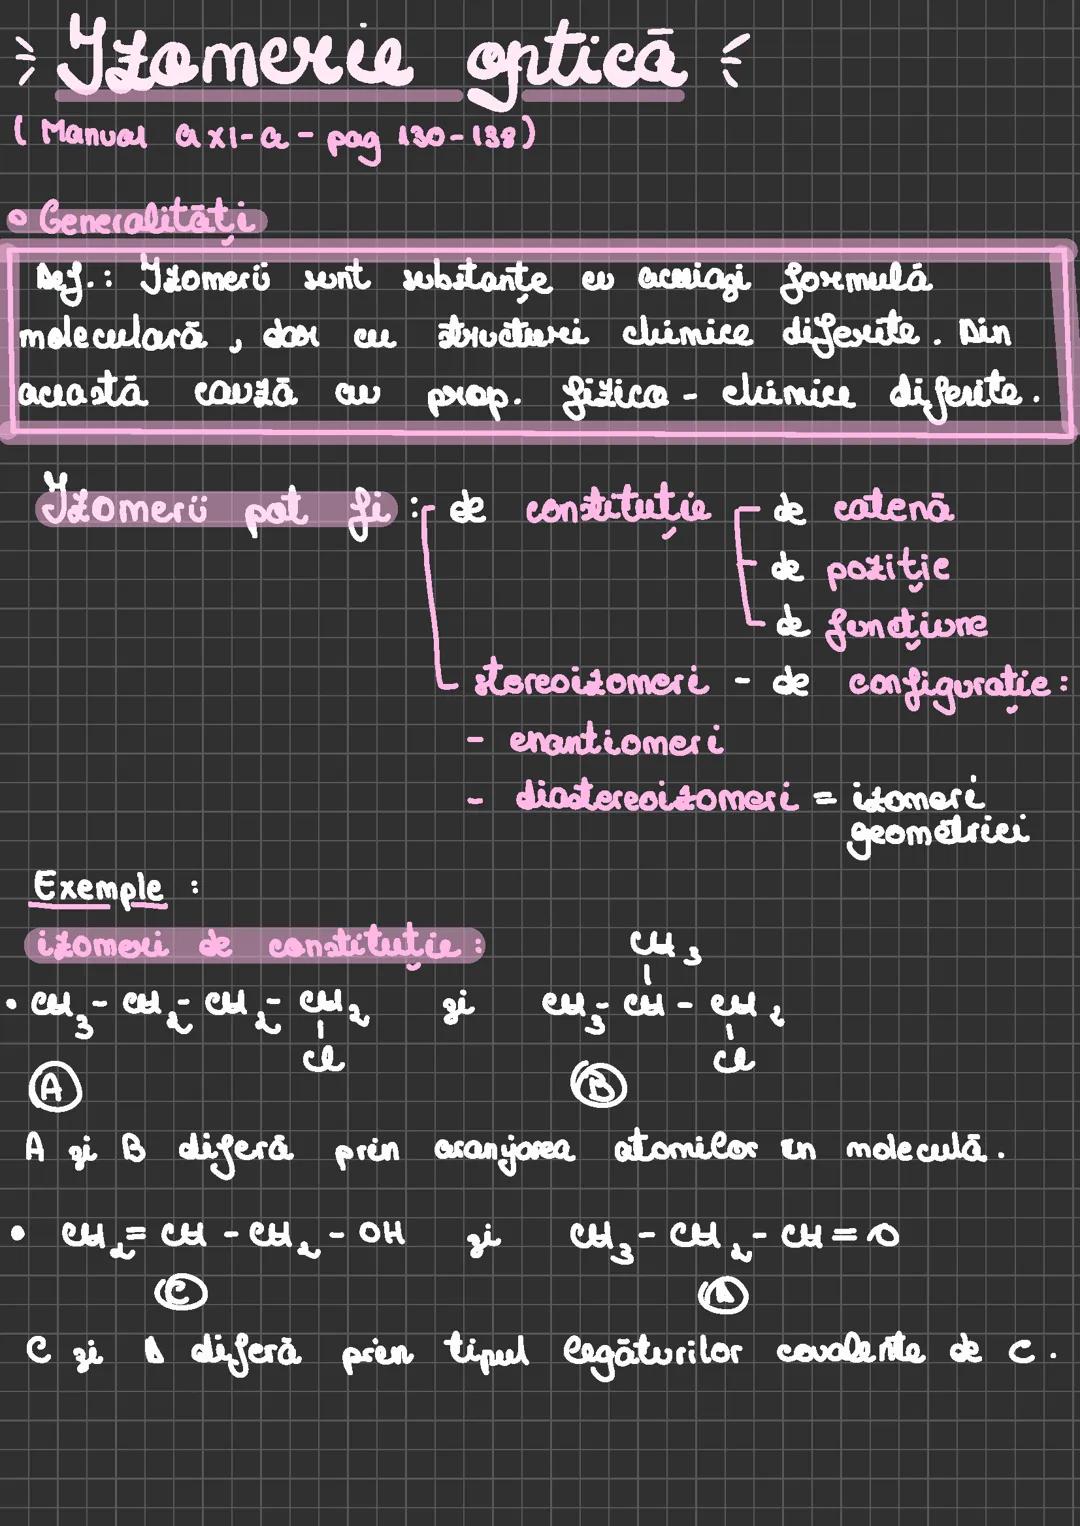 Izomerie optică
(Manual a XI-a - pag 130-138)
• Generalități
Def.: Izomerii sunt substanțe cu aceiași formulă
moleculară, dar cu structuri chimice diferite. Din
această cauză au prop. fizico-chimice diferite.
Izomerii pot fi : de constituție - de catenă
- de poziție
- de funcțiune
stereoizomeri - de configurație:
- enantiomeri
- diastereoizomeri = izomeri
geometrici
Exemple :
izomeri de constituție :
CH3
• CH3 - CH2 - CH2 - CH2 și CH3 - CH - CH2
Cl Cl
A B
A și B diferă prin aranjarea atomilor în moleculă.
• CH2 = CH - CH2 - OH și CH3 - CH2 - CH = O
C D
C și D diferă prin tipul legăturilor covalente de C.